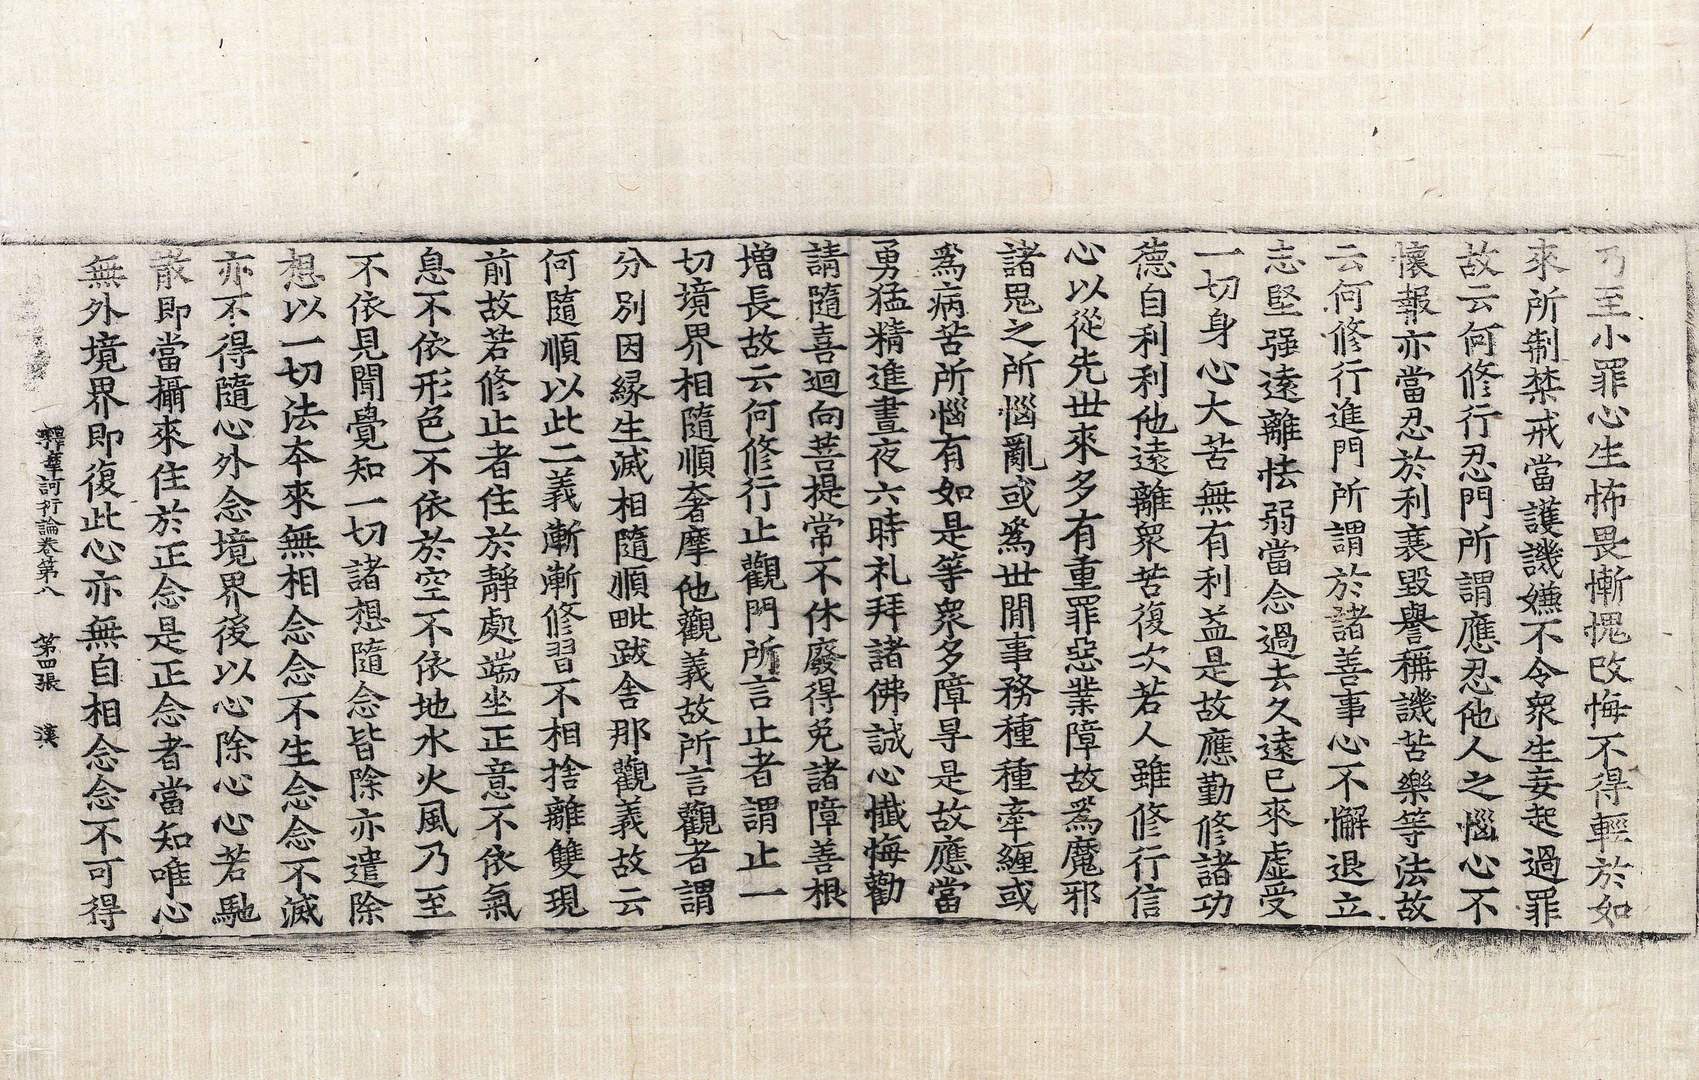 乃至小罪心生怖畏慚愧改悔不得輕於如
來所制禁戒當護譏嫌不令衆生妄起過罪
故云何修行忍門所謂應忍他人之惱心不
懷報亦當忍於利衰毀譽稱譏苦樂等法故
云何修行進門所謂於諸善事心不懈退立
志堅强遠離怯弱當念過去久遠已來虛受
一切身心大苦無有利益是故應勤修諸功
德自利利他遠離衆苦復次若人雖修行信
心以從先世來多有重罪惡業障故爲魔邪
諸鬼之所惱亂或爲世閒事務種種牽纏或
爲病苦所惱有如是等衆多障㝵是故應當
勇猛精進晝夜六時礼拜諸佛誠心懺悔勸
請隨喜迴向菩提常不休廢得免諸障善根
增長故云何修行止觀門所言止者謂止一
切境界相隨順奢摩他觀義故所言觀者謂
分別因緣生滅相隨順毗跋舍那觀義故云
何隨順以此二義漸漸修習不相捨離雙現
前故若修止者住於靜處端坐正意不依氣
息不依形色不依於空不依地水火風乃至
不依見聞覺知一切諸想隨念皆除亦遣除
想以一切法夲來無相念念不生念念不滅
亦不得隨心外念境界後以心除心心若馳
散即當攝來住於正念是正念者當知唯心
無外境界即復此心亦無自相念念不可得
釋摩訶衍論卷第八 第四張 漢